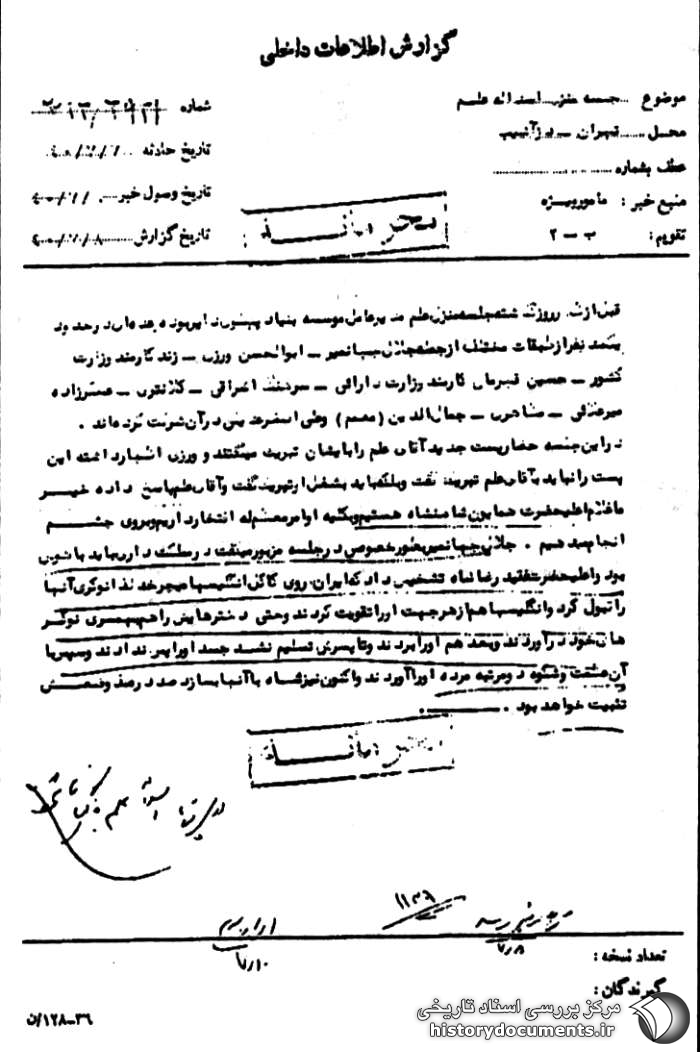 گزارش اطلاعات داخلی
موضوع جلسه منزل اسداله علم
شماره
محل تهران - دزآشیب
تاریخ حادثه
عطف بشماره
تاریخ وصول خبر
منبع خبر : مامور ویژه
تقویم : ب - ۲
تاریخ گزارش
محرمانه
قبل از ظهر روز گذشته جلسه منزل علم مدیرعامل موسسه بنیاد پهلوی دایر بوده و عده‌ای در حدود
یکصد نفر از طبقات مختلف از جمله جلالی جهانمیر - ابوالحسن ورزی - زند کارمند وزارت
کشور - حسین قهرمان کارمند وزارت دارائی - سرهنگ اشراقی - کلانتری - عسگرزاده
میرعمادی - مشاهری - جمال الدین (معمم) وعلی اصغر مدیسی در آن شرکت کرده‌اند .
در این جلسه حضار پست جدید آقای علم را بایشان تبریک میگفتند و ورزی اظهار داشته این
پست را نباید به آقای علم تبریک گفت وبلکه باید بشغل او تبریک گفت وآقای علم پاسخ داده خیر
ما غلام اعلیحضرت همایون شاهنشاه هستیم وبکلیه اوامر معظم له افتخار داریم وبروی چشم
انجام میدهیم . جلالی جهانمیر بطور خصوصی در جلسه مزبور میگفت در مملکت داری باید با هوش
بود واعلیحضرت فقید رضا شاه تشخیص داد که ایران روی کاکل انگلیسها میچرخد لذا نوکری آنها
را قبول کرد وانگلیسها هم از هر جهت او را تقویت کردند وحتی دخترهایش را هم بهمسری نوکر
های خود در آوردند وبعد هم او را بردند وتا پسرش تسلیم نشد جسد او را پس ندادند وسپس با
آن عظمت وشکوه دو مرتبه مرده او را آوردند واکنون نیز شاه با آنها بسازد صد در صد وضعش
تثبیت خواهد بود .
محرمانه
۱۱۳۶
۷/۸
۷/۱۰
تعداد نسخه :
گیرندگان :
۳۶-۱۲۸/ن
مرکز بررسی اسناد تاریخی
historydocuments.ir